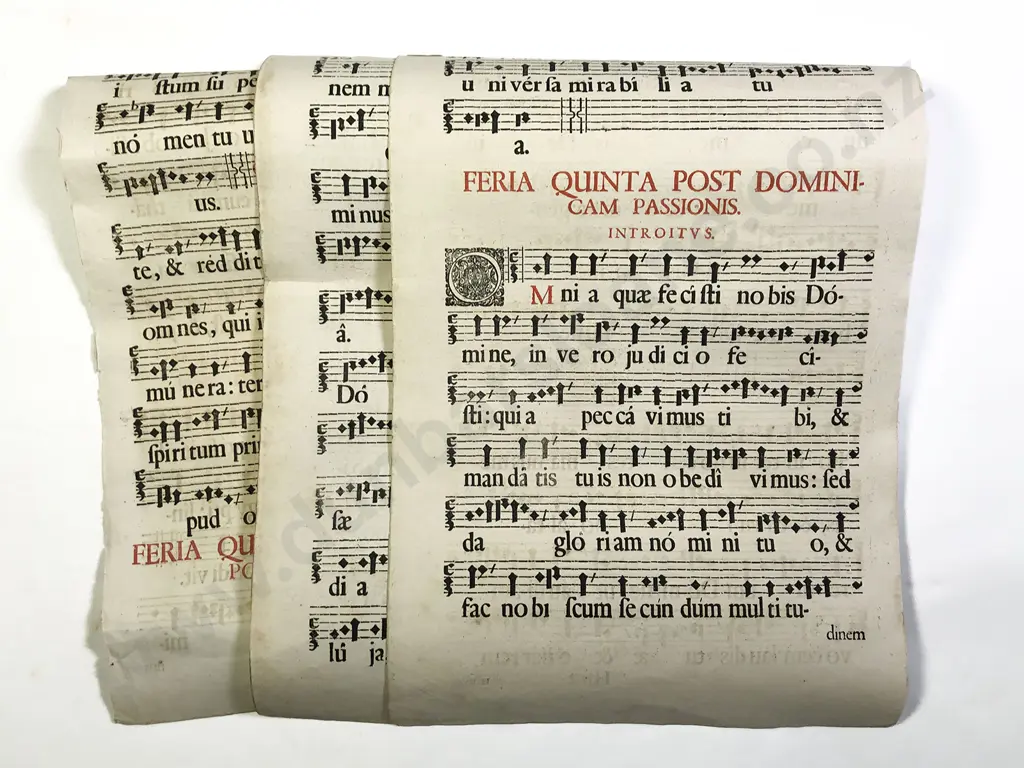 i stum su pe
nó men tu u
us.
te, & red di t
om nes, qui i
mú ne ra: ter
ſpi ri tum prin
pud o
FERIA QU
PO
nem n
mi nus
â.
Dó
ſæ
di a
lú ja
u ni vér ſa mi ra bí li a tu
a.
FERIA QUINTA POST DOMINI-
CAM PASSIONIS.
INTROITVS.
O M ni a quæ fe ci ſti no bis Dó-
mi ne, in ve ro ju di ci o fe cí-
ſti: qui a pec cá vi mus ti bi, &
man dâ tis tu is non o be dî vi mus: ſed
da gló ri am nó mi ni tu o, &
fac no bí ſcum ſe cún dúm mul ti tu-
dinem